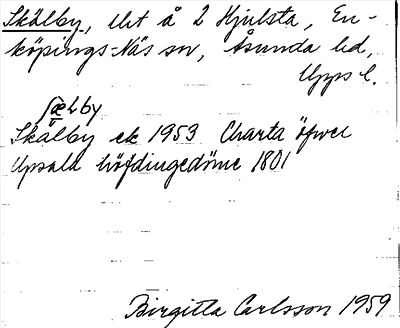 Skälby, utet å 2 Hjulsta, En-
köpings-Näs sn, Åsunda hd,
Upps l.
Skälby ek 1953 Charta öfwer
Upsala höfdingedöme 1801
Birgitta Carlsson 1959